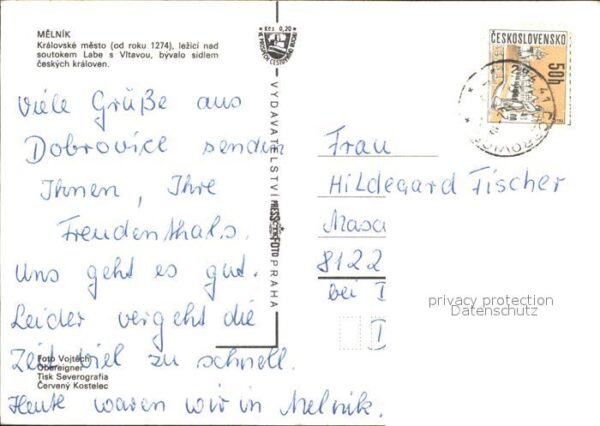 MĚLNÍK
Královské město (od roku 1274), ležící nad
soutokem Labe s Vltavou, bývalo sídlem
českých královen.
Kčs 0,20
VYDAVATELSTVÍ PRESSFOTO PRAHA
ČESKOSLOVENSKO
50h
Viele Grüße aus
Dobrovice senden
Ihnen, Ihre
Freudenthals.
Uns geht es gut.
Leider vergeht die
Zeit viel zu schnell.
Heute waren wir in Melnik.
Foto Vojtěch
Obereigner
Tisk Severografia
Červený Kostelec
Frau
Hildegard Fischer
Masa
8122
bei I
I
privacy protection
Datenschutz